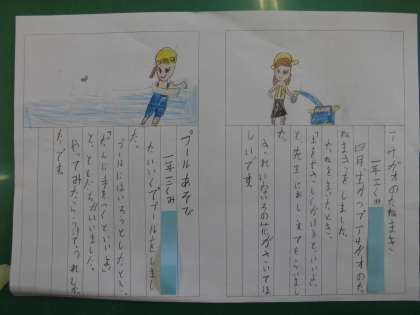 アサガオのたねまき
一年二くみ
四月生かつでアサガオのた
ねまきをしました。
たねをまいたとき、
「土をやさしくかけるといいよ」
と先生におしえてもらいまし
た。
きれいないろの花がさいてほ
しいです。
プールあそび
一年二くみ
たいいくでプールをしまし
た。
プールにはいろうとしたとき、
ともだちがいいました。
やってみたら
たです。